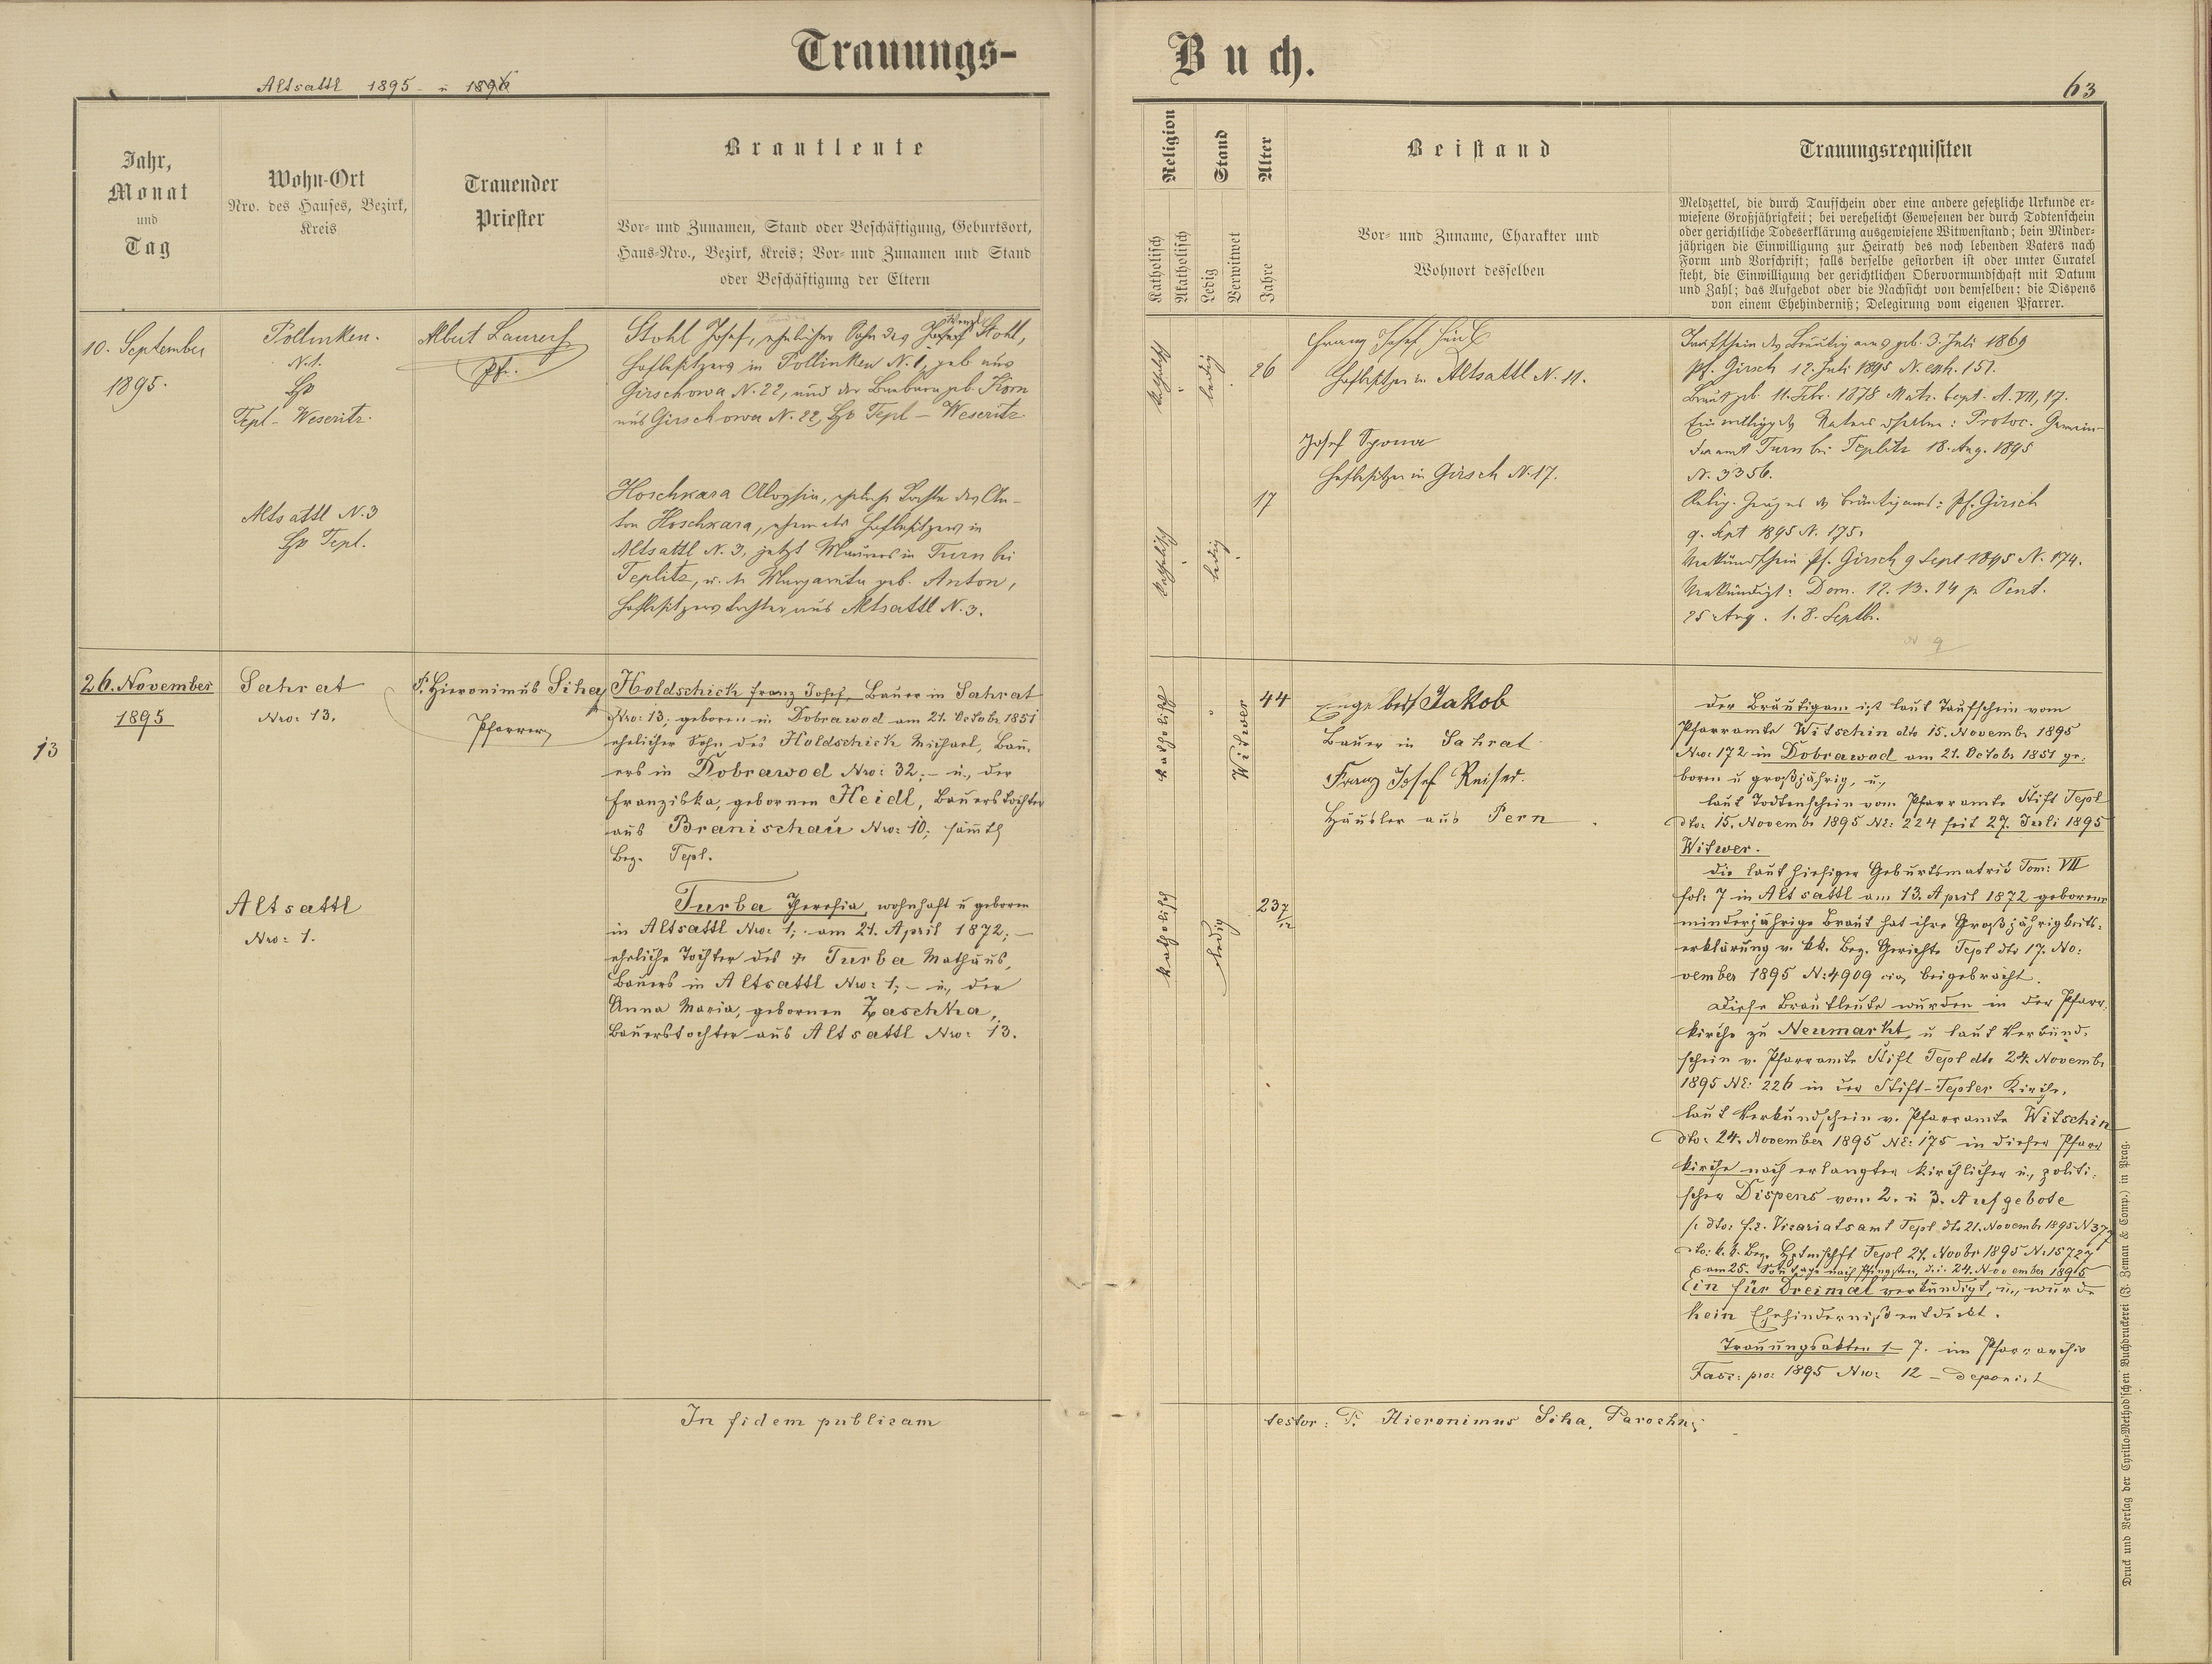 Trauungs-
Buch.
Altsattl 1895 u 1896
63
Jahr,
Monat
und
Tag
Wohn-Ort
Nro. des Hauses, Bezirk,
Kreis
Trauender
Priester
Brautleute
Vor- und Zunamen, Stand oder Beschäftigung, Geburtsort,
Haus-Nro., Bezirk, Kreis; Vor- und Zunamen und Stand
oder Beschäftigung der Eltern
Religion
Katholisch
Akatholisch
Stand
Ledig
Verwitwet
Alter
Jahre
Beistand
Vor- und Zuname, Charakter und
Wohnort desselben
Trauungsrequisiten
Meldzettel, die durch Taufschein oder eine andere gesetzliche Urkunde er-
wiesene Großjährigkeit; bei verehelicht Gewesenen der durch Todtenschein
oder gerichtliche Todeserklärung ausgewiesene Witwenstand; bein Minder-
jährigen die Einwilligung zur Heirath des noch lebenden Vaters nach
Form und Vorschrift; falls derselbe gestorben ist oder unter Curatel
steht, die Einwilligung der gerichtlichen Obervormundschaft mit Datum
und Zahl; das Aufgebot oder die Nachsicht von demselben; die Dispens
von einem Ehehinderniß; Delegirung vom eigenen Pfarrer.
10. September
1895.
Pollinken.
N. 1.
Tepl - Weseritz.
Albert
Pfr.
Stohl Josef, ehelicher Sohn des Wenzl Stohl,
Hofbesitzers in Pollinken N. 1, geb aus
Girschowa N. 22, und der Barbara geb. Körn
aus Girschowa N. 22, Tepl - Weseritz
katholisch
ledig
26
Franz Josef
Hofbesitzer in Altsattl N. 11.
Josef Spona
Hofbesitzer in Girsch N. 17.
Altsattl N. 3
Tepl.
Hoschkara Aloysia, eheliche Tochter des An-
ton Hoschkara, ehemals Hofbesitzers in
Altsattl N. 3, jetzt Maurers in Turn bei
Teplitz, u. der Margareta geb. Anton,
Hofbesitzers tochter aus Altsattl N. 3.
katholisch
ledig
17
Taufschein des Bräutigams geb. 3. Juli 1869
pf. Girsch 12. Juli 1895 N. exh. 151.
Braut geb. 11. Febr. 1878 Matr. bapt. A. VII, 17.
Einwilligg des Vaters derselben: Protoc. Gemein-
deamt Turn bei Teplitz 18. Aug. 1895
N. 3356.
Relig. Zeugnis des Bräutigams: Pf. Girsch
9. Sept 1895 N. 175.
Verkündschein Pf. Girsch 9 Sept 1895 N. 174.
Verkündigt: Dom. 12. 13. 14 p. Pent.
25 Aug. 1. 8. Septbr.
N 9
13
26. November
1895
Sahrat
Nro: 13.
P. Hieronimus Siha
Pfarrer
Holdschick Franz Josef, Bauer in Sahrat
Nro: 13; geboren in Dobrawod am 21. Octobr 1851
ehelicher Sohn des Holdschick Michael, Bau-
ers in Dobrawod Nro: 32; - u., der
Franziska, gebornen Heidl, Bauerstochter
aus Branischau Nro: 10; sämtl
Bez. Tepl.
katholisch
Witwer
44
Jakob
Bauer in Sahrat
Franz Josef Reiser.
Häusler aus Pern
Altsattl
Nro: 1.
Turba Theresia, wohnhaft u geboren
in Altsattl Nro: 1; am 21. April 1872; -
eheliche Tochter des Turba Mathäus,
Bauers in Altsattl Nro: 1; - u., der
Anna Maria, gebornen Zaschka,
Bauerstochter aus Altsattl Nro: 13.
katholisch
ledig
23 7/12
der Bräutigam ist laut Taufschein vom
Pfarramte Witschin dto 15. Novembr 1895
Nro: 172 in Dobrawod am 21. Octobr 1851 ge-
boren u großjährig, u.,
laut Todtenschein vom Pfarramte Stift Tepl
dto: 15. Novembr 1895 NE: 224 seit 27. Juli 1895
Witwer.
die laut hiesiger Geburtsmatrik Tom: VII
fol: 7 in Altsattl am 13. April 1872 geborene
minderjährige Braut hat ihre Großjährigkeits-
erklärung v. kk. Bez. Gerichte Tepl dto 17. No-
vember 1895 N: 4909 beigebracht.
Diese Brautleute wurden in der Pfarr-
kirche zu Neumarkt, u laut Verkünd-
schein v. Pfarramte Stift Tepl dto 24. Novembr
1895 NE: 226 in der Stift-Tepler Kirche,
laut Verkündschein v. Pfarramte Witschin
dto: 24. November 1895 NE: 175 in dieser Pfarr
kirche nach erlangter kirchlicher u., politi-
scher Dispens vom 2. u 3. Aufgebote
/: dto: f.e. Vicariatsamt Tepl dto 21. Novembr 1895 N 377
dto: k. k. Bez. Hptmschft Tepl 21. Novbr 1895 N: 15727
am 25. Sonntage nach Pfingsten, d.i. 24. November 1895
Ein für Dreimal verkündigt, u., wurde
kein Ehehinderniß entdeckt.
Trauungsakten 1 - 7. im Pfarrarchiv
Fasc: pro: 1895 Nro: 12 - deponirt
In fidem publicam
testor: P. Hieronimus Siha, Parochus
Druck und Verlag der Cyrillo-Method'schen Buchdruckerei (J. Zeman & Comp.) in Prag.